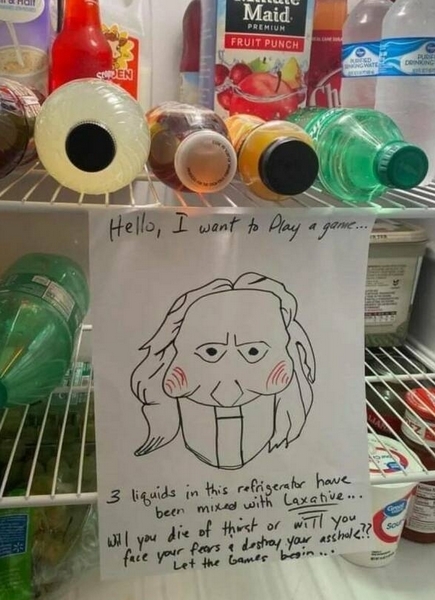 Maid
PREMIUM
FRUIT PUNCH
Hello, I want to Play a game...
3 liquids in this refrigerator have
been mixed with Laxative...
Will you die of thirst or will you
face your fears & destroy your asshole??
Let the Games begin...